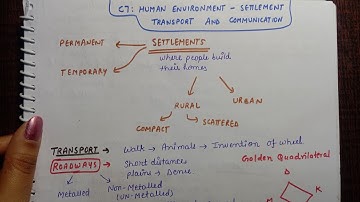 C7: HUMAN ENVIRONMENT - SETTLEMENT
TRANSPORT AND COMMUNICATION
PERMANENT
SETTLEMENTS
TEMPORARY
where people build
their homes
RURAL
URBAN
COMPACT
SCATTERED
TRANSPORT → Walk → Animals → Invention of wheel
ROADWAYS → Short distances
plains → Dense
Golden Quadrilateral
Metalled
Non-Metalled
(UN-METALLED)
D
K
M